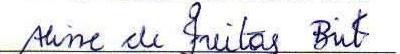 Aline de Freitas Brit